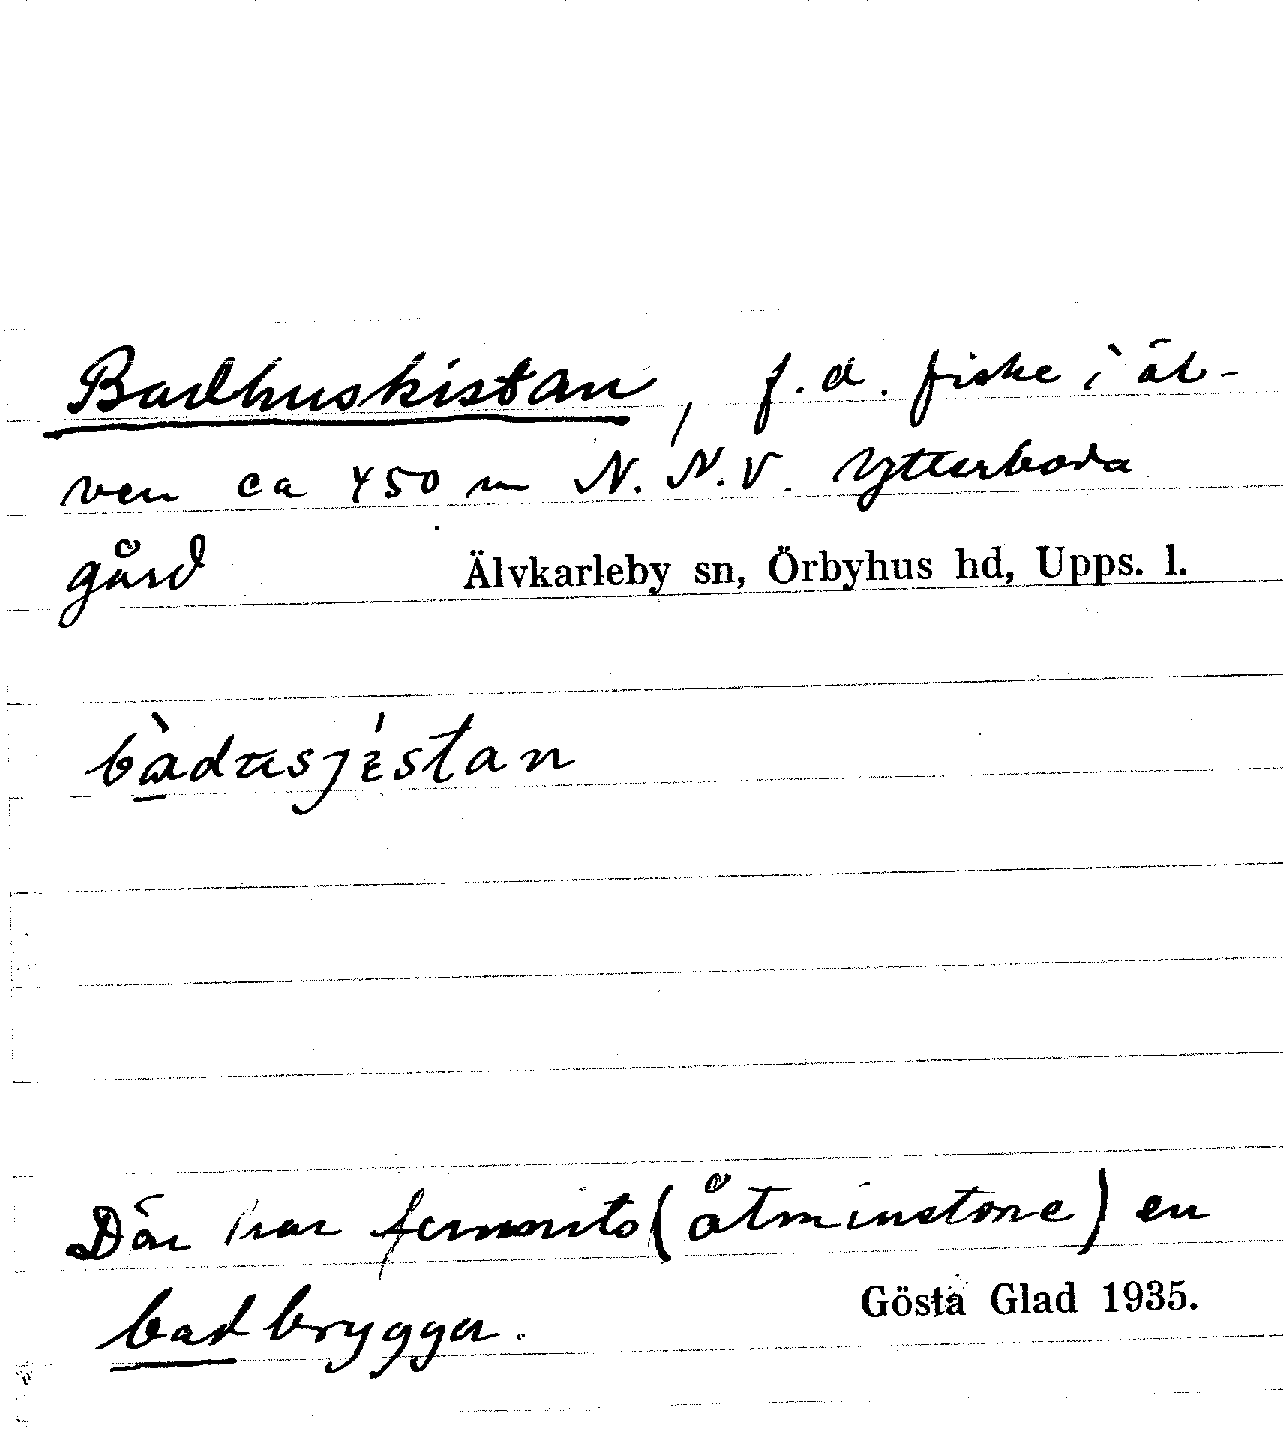 Badhuskistan, f.d. fiske i äl-
ven ca 450 m N.N.V. Ytterboda
gård Älvkarleby sn, Örbyhus hd, Upps. l.
bàdusjéstan
Där har funnits (åtminstone) en
badbrygga.
Gösta Glad 1935.